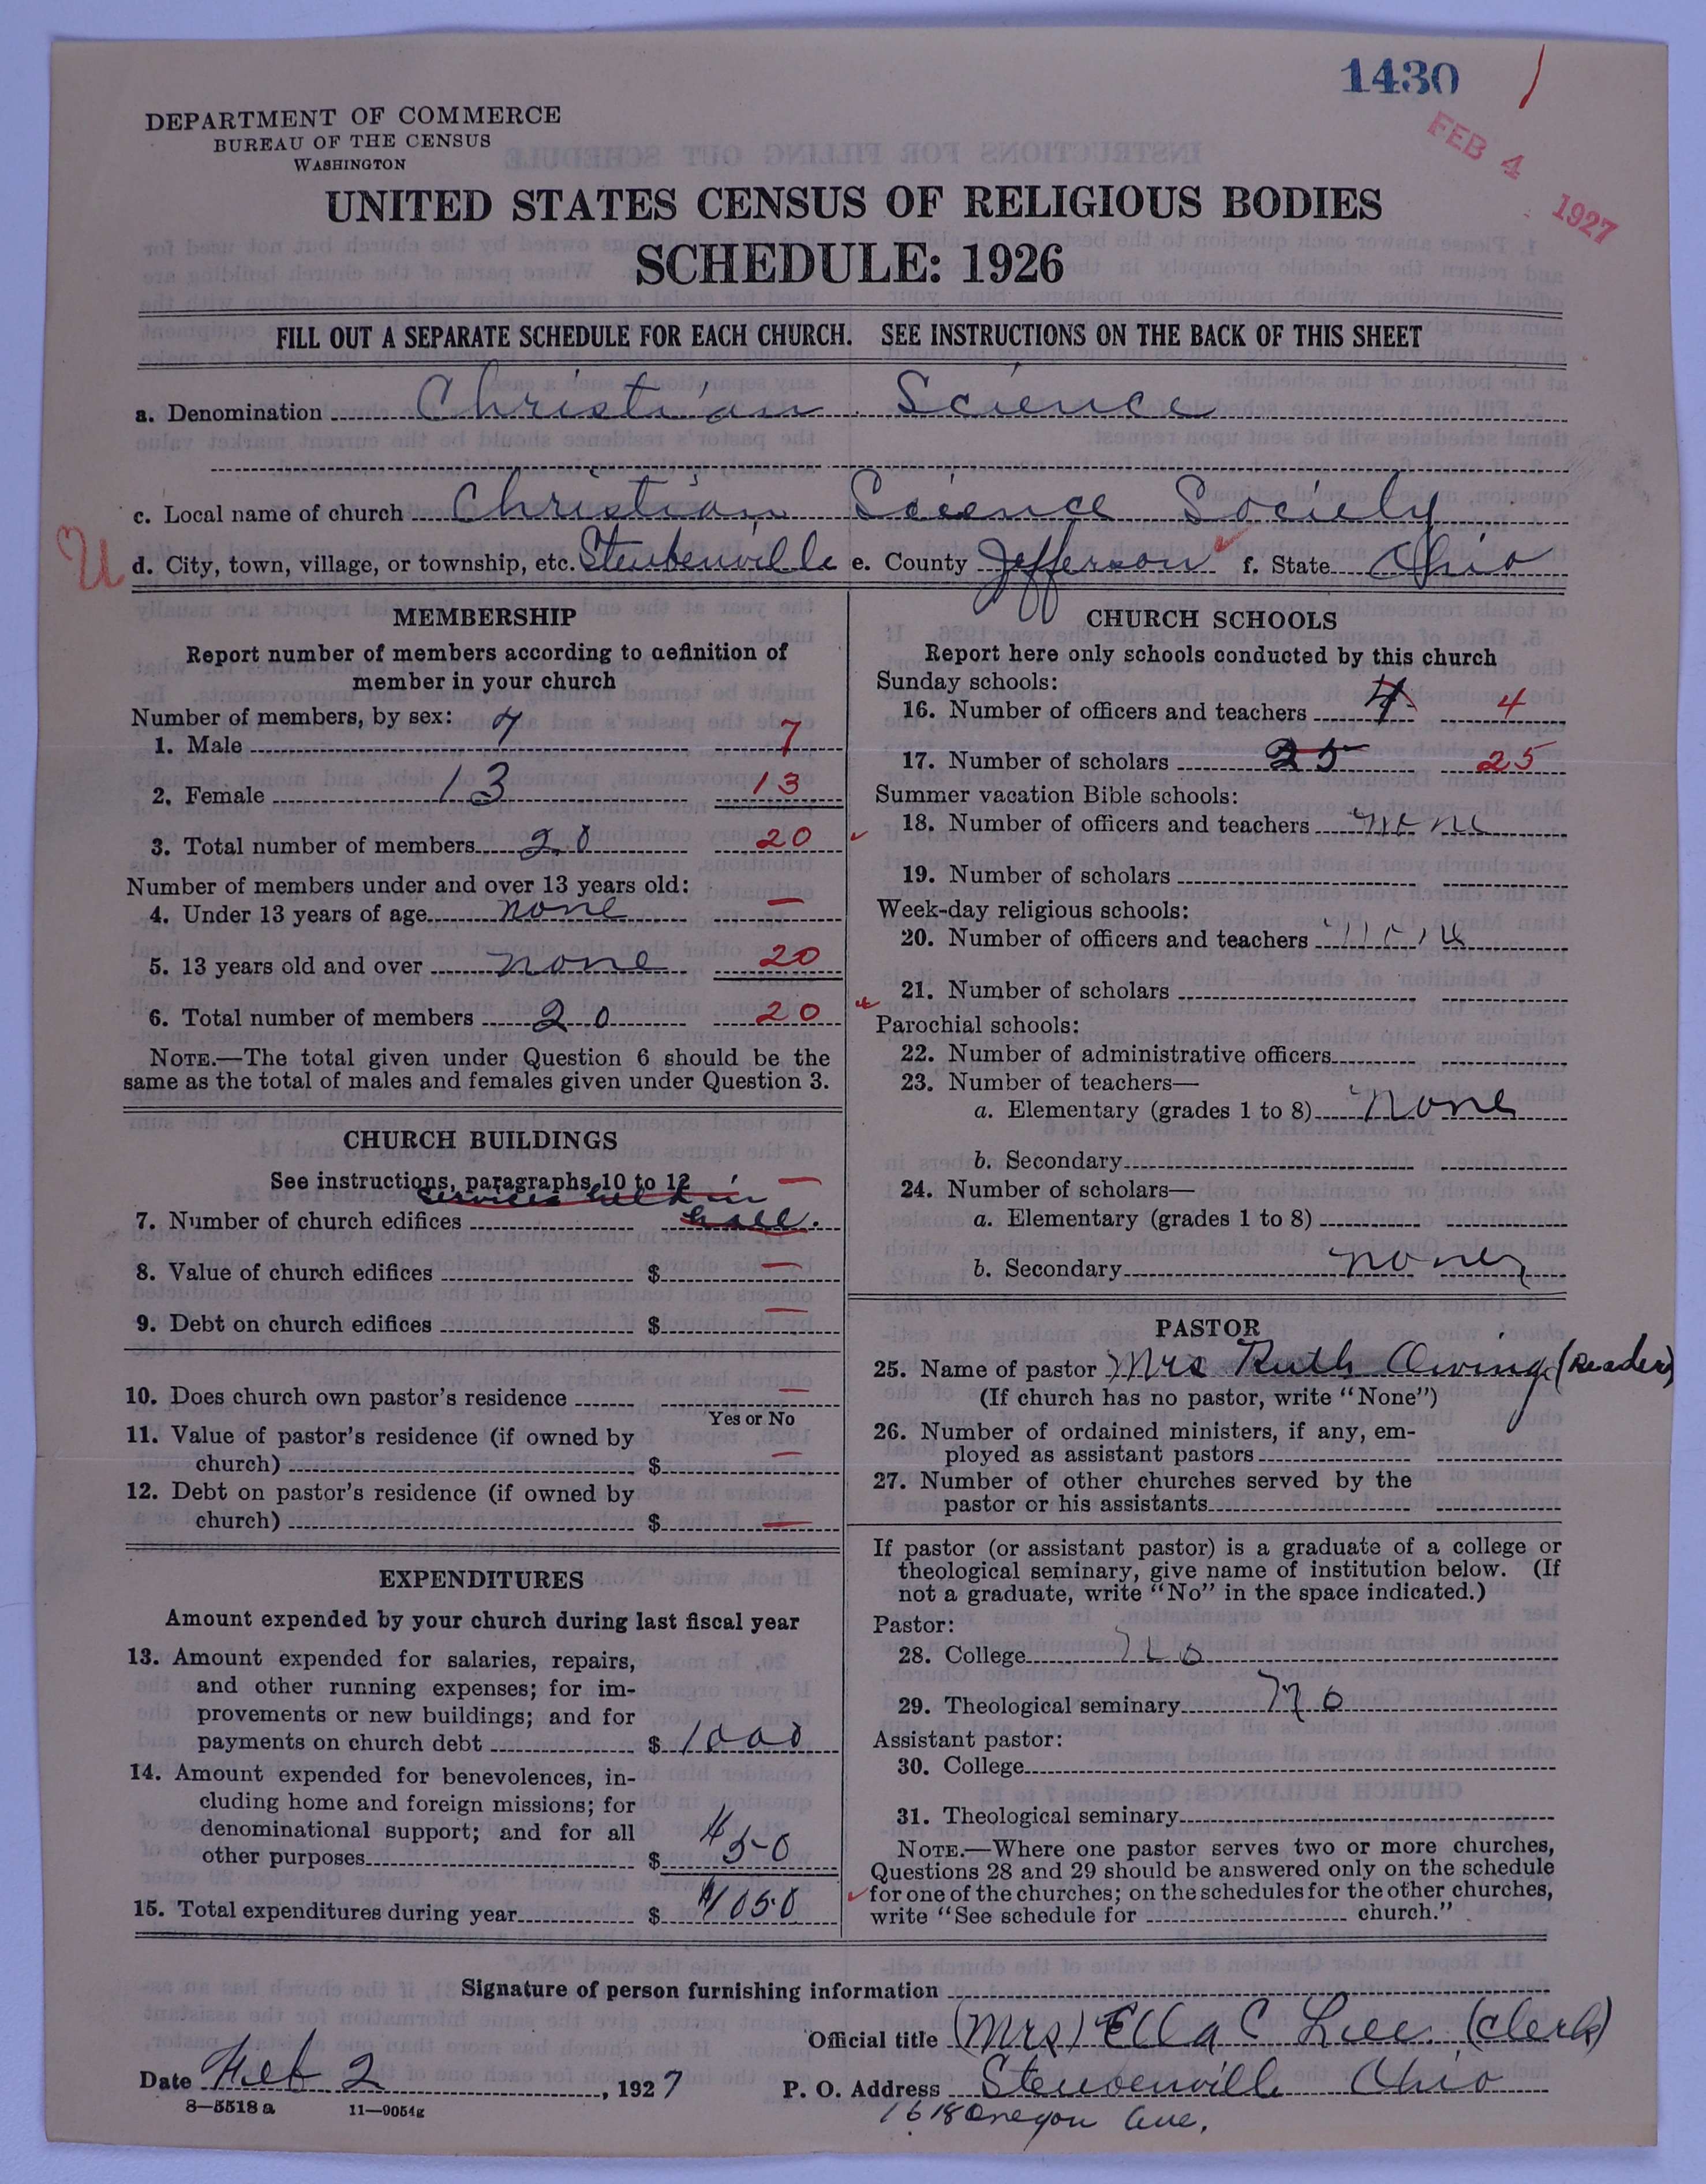 1430
FEB 4 1927
DEPARTMENT OF COMMERCE
BUREAU OF THE CENSUS
WASHINGTON
UNITED STATES CENSUS OF RELIGIOUS BODIES
SCHEDULE: 1926
FILL OUT A SEPARATE SCHEDULE FOR EACH CHURCH. SEE INSTRUCTIONS ON THE BACK OF THIS SHEET
a. Denomination Christian Science
c. Local name of church Christian Science Society
U d. City, town, village, or township, etc. Steubenville e. County Jefferson f. State Ohio
MEMBERSHIP
Report number of members according to definition of
member in your church
Number of members, by sex:
1. Male 7 7
2. Female 13 13
3. Total number of members 20 20
Number of members under and over 13 years old:
4. Under 13 years of age none —
5. 13 years old and over none 20
6. Total number of members 20 20
NOTE.—The total given under Question 6 should be the
same as the total of males and females given under Question 3.
CHURCH BUILDINGS
See instructions, paragraphs 10 to 12 —
services held in
7. Number of church edifices hall.
8. Value of church edifices $ —
9. Debt on church edifices $ —
10. Does church own pastor's residence —
Yes or No
11. Value of pastor's residence (if owned by
church) $ —
12. Debt on pastor's residence (if owned by
church) $ —
EXPENDITURES
Amount expended by your church during last fiscal year
13. Amount expended for salaries, repairs,
and other running expenses; for im-
provements or new buildings; and for
payments on church debt $ 1000
14. Amount expended for benevolences, in-
cluding home and foreign missions; for
denominational support; and for all
other purposes $ 50
15. Total expenditures during year $ 1050
CHURCH SCHOOLS
Report here only schools conducted by this church
Sunday schools:
16. Number of officers and teachers 4 4
17. Number of scholars 25 25
Summer vacation Bible schools:
18. Number of officers and teachers none
19. Number of scholars
Week-day religious schools:
20. Number of officers and teachers none
21. Number of scholars
Parochial schools:
22. Number of administrative officers
23. Number of teachers—
a. Elementary (grades 1 to 8) none
b. Secondary
24. Number of scholars—
a. Elementary (grades 1 to 8)
b. Secondary none
PASTOR
25. Name of pastor Mrs Ruth Owings (Reader)
(If church has no pastor, write "None")
26. Number of ordained ministers, if any, em-
ployed as assistant pastors
27. Number of other churches served by the
pastor or his assistants
If pastor (or assistant pastor) is a graduate of a college or
theological seminary, give name of institution below. (If
not a graduate, write "No" in the space indicated.)
Pastor:
28. College no
29. Theological seminary no
Assistant pastor:
30. College
31. Theological seminary
NOTE.—Where one pastor serves two or more churches,
Questions 28 and 29 should be answered only on the schedule
for one of the churches; on the schedules for the other churches,
write "See schedule for church."
Signature of person furnishing information
Official title (Mrs) Ella C Lee (Clerk)
Date Feb 2, 1927 P. O. Address Steubenville Ohio
8—5518 a 11—9054g 1618 Oregon Ave.